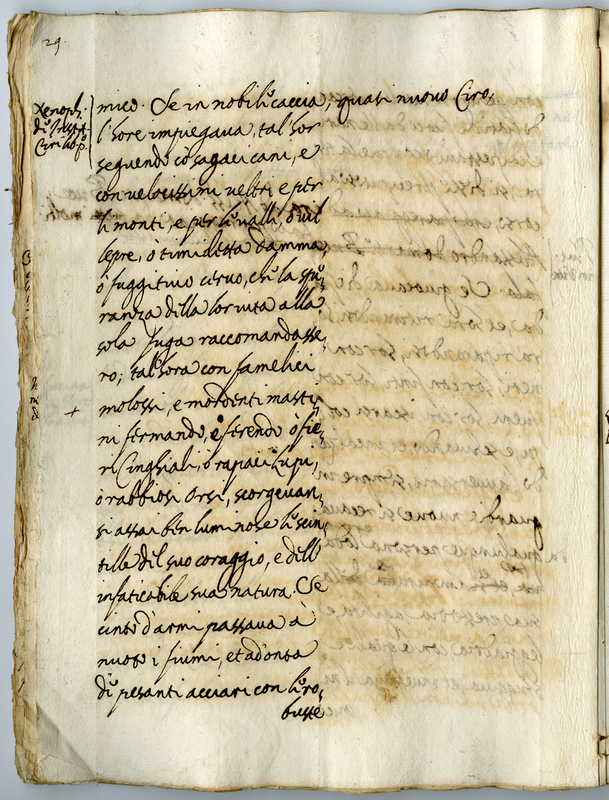 29.
Xenoph.
di Instit.
Ciri lib. p.º
mico. Se in nobil caccia, quasi nuovo Ciro,
l'hore impiegava, tal'hor
seguendo cō sagaci cani, e
con velocissimi veltri e per
li monti, e per le valli, ò vil
lepre, ò timidetta Damma,
ò fuggitivo cervo, che la spe,
ranza della lor vita alla
sola fuga raccomandasse,
ro; tal'hora con famelici
molossi, e mordenti masti,
ni fermando, e ferendo ò fie,
ri Cinghiali, ò rapaci Lupi,
ò rabbiosi Orsi, scorgevan,
si assai ben luminose le scin,
tille del suo coraggio, e dell'
infaticabile sua natura. Se
cinto d'armi passava à
nuoto i fiumi, et ad onta
di pesanti acciari con le ro,
buste